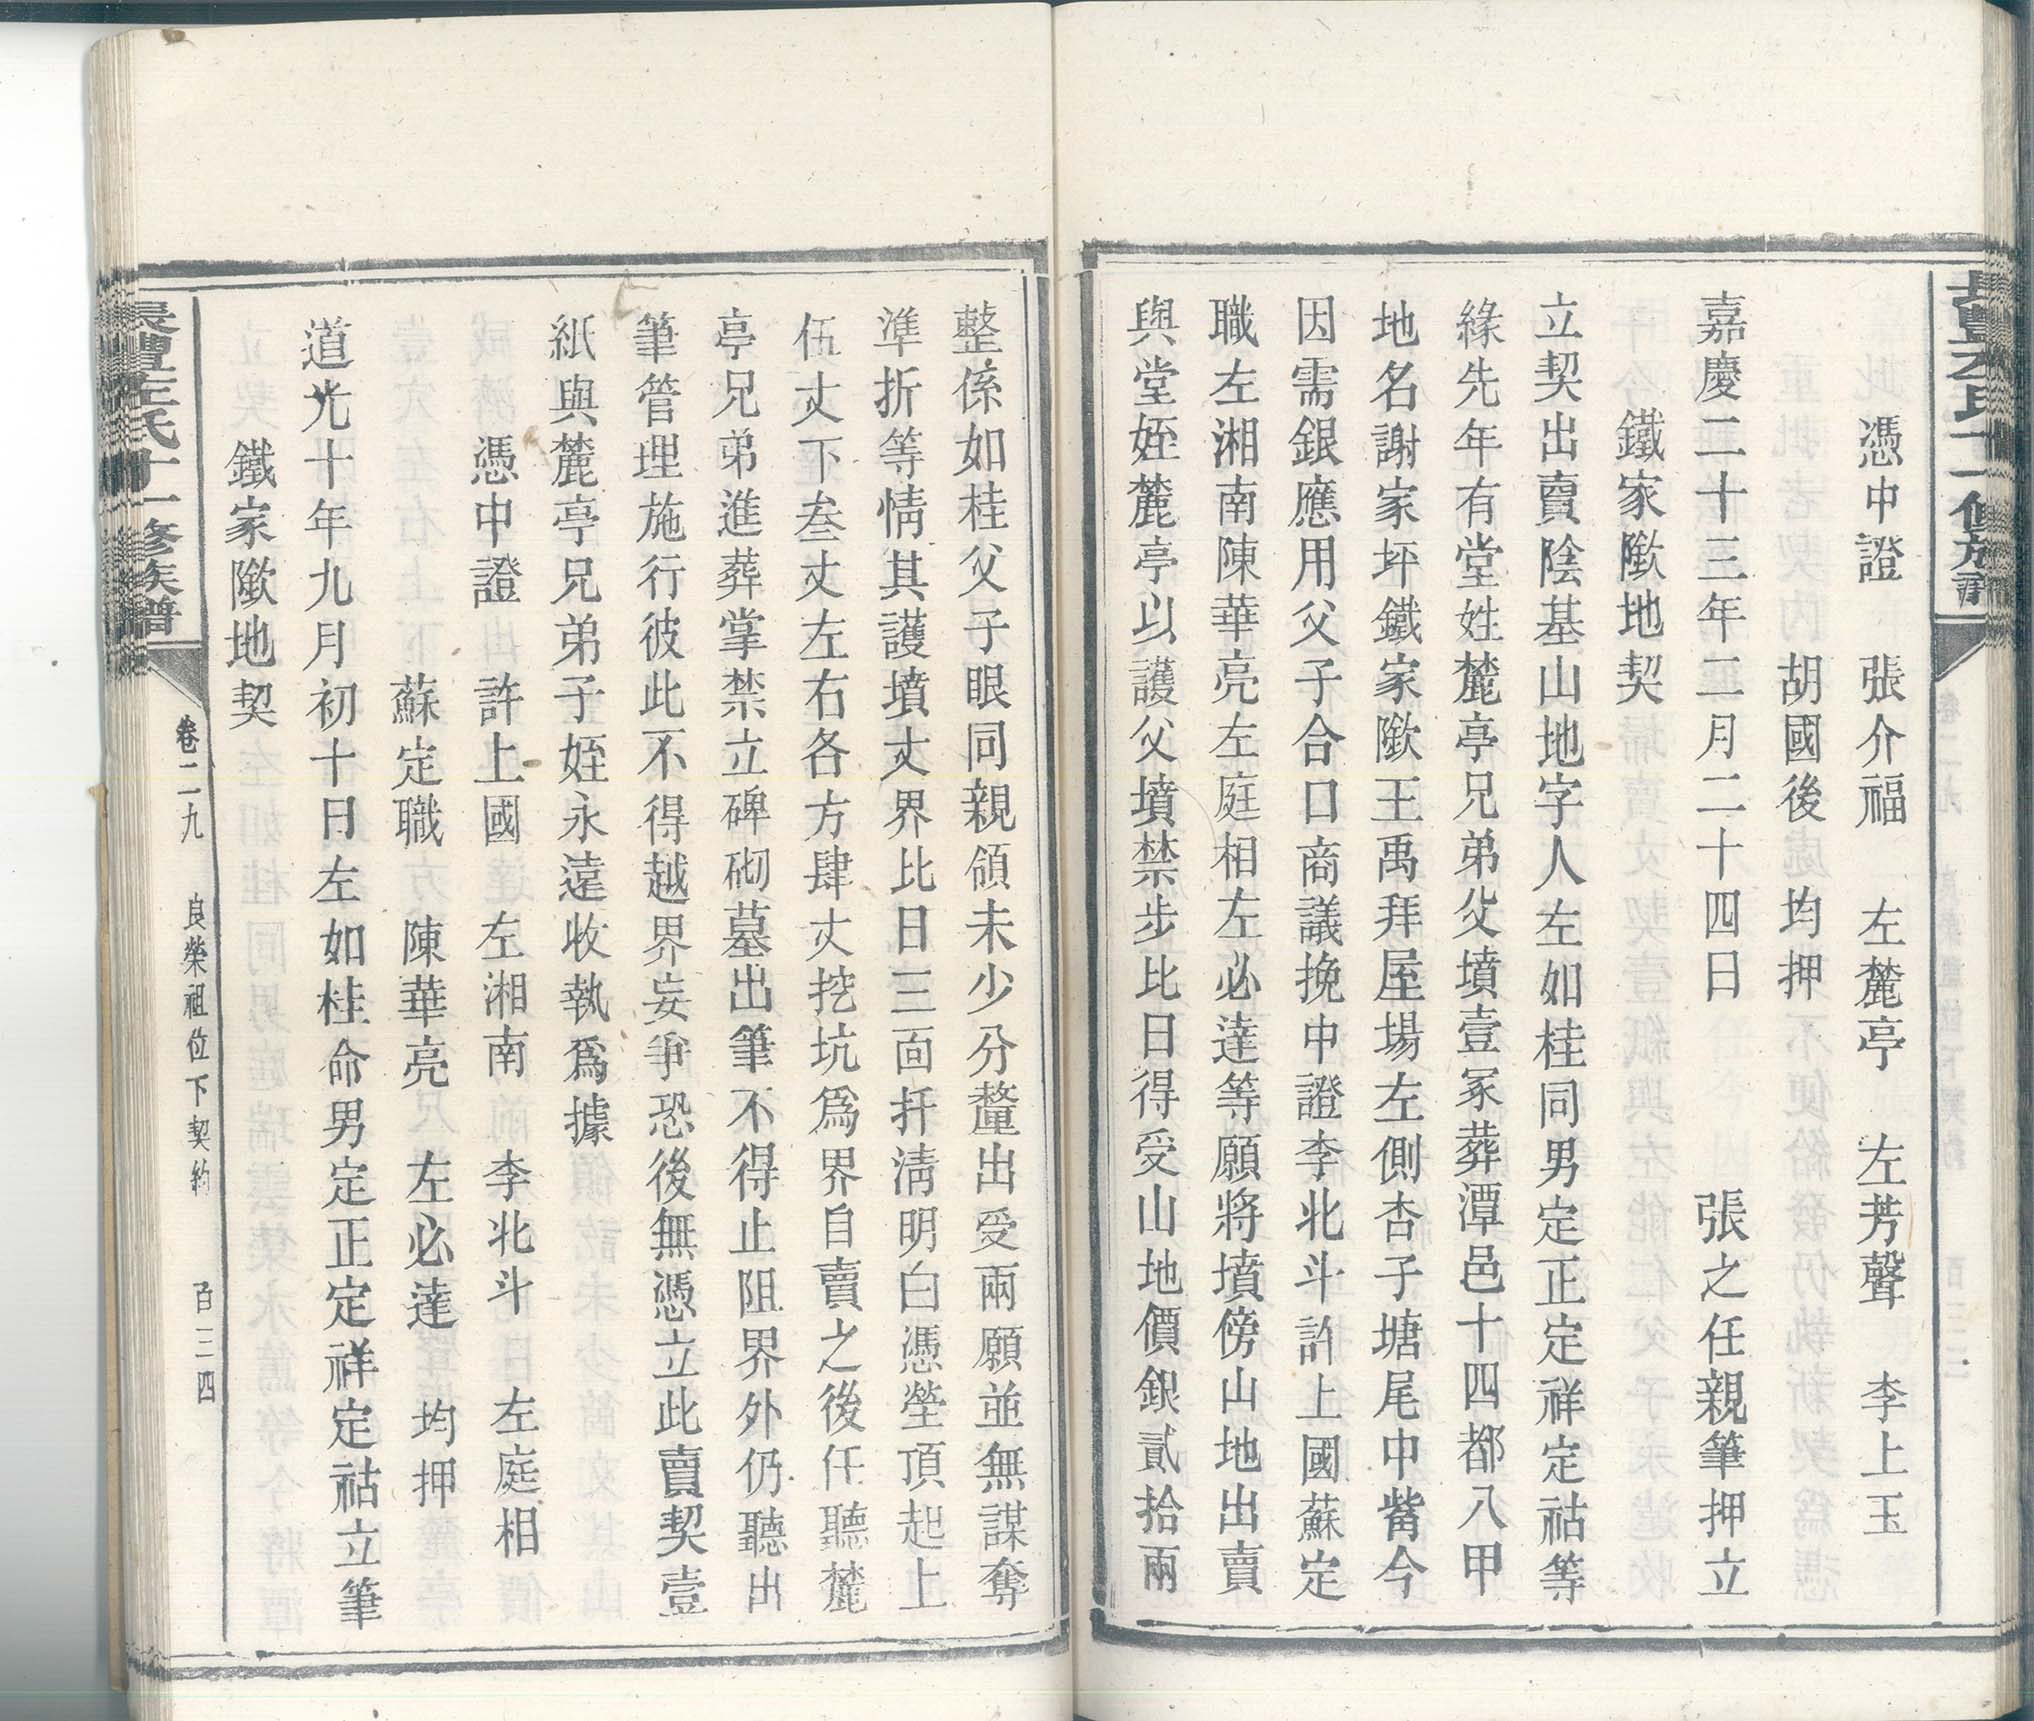 憑中證　張介福　左麓亭　左芳聲　李上玉
胡國後　均押
嘉慶二十三年二月二十四日　張之任親筆押立
鐵家歘地契
立契出賣陰基山地字人左如桂同男定正定祥定祜等
緣先年有堂姓麓亭兄弟父墳壹冢葬潭邑十四都八甲
地名謝家坪鐵家歘王禹拜屋場左側杏子塘尾中觜今
因需銀應用父子合口商議挽中證李北斗許上國蘇定
職左湘南陳華亮左庭相左必達等願將墳傍山地出賣
與堂姪麓亭以護父墳禁步比日得受山地價銀貳拾兩
整係如桂父子眼同親領未少分釐出受兩願並無謀奪
準折等情其護墳丈界比日三面扦淸明白憑塋頂起上
伍丈下叁丈左右各方肆丈挖坑爲界自賣之後任聽麓
亭兄弟進葬掌禁立碑砌墓出筆不得止阻界外仍聽出
筆管理施行彼此不得越界妄爭恐後無憑立此賣契壹
紙與麓亭兄弟子姪永遠收執爲據
憑中證　許上國　左湘南　李北斗　左庭相
蘇定職　陳華亮　左必達　均押
道光十年九月初十日左如桂命男定正定祥定祜立筆
鐵家歘地契
長豐左氏十一修族譜
卷二九　良榮祖位下契約　百三四